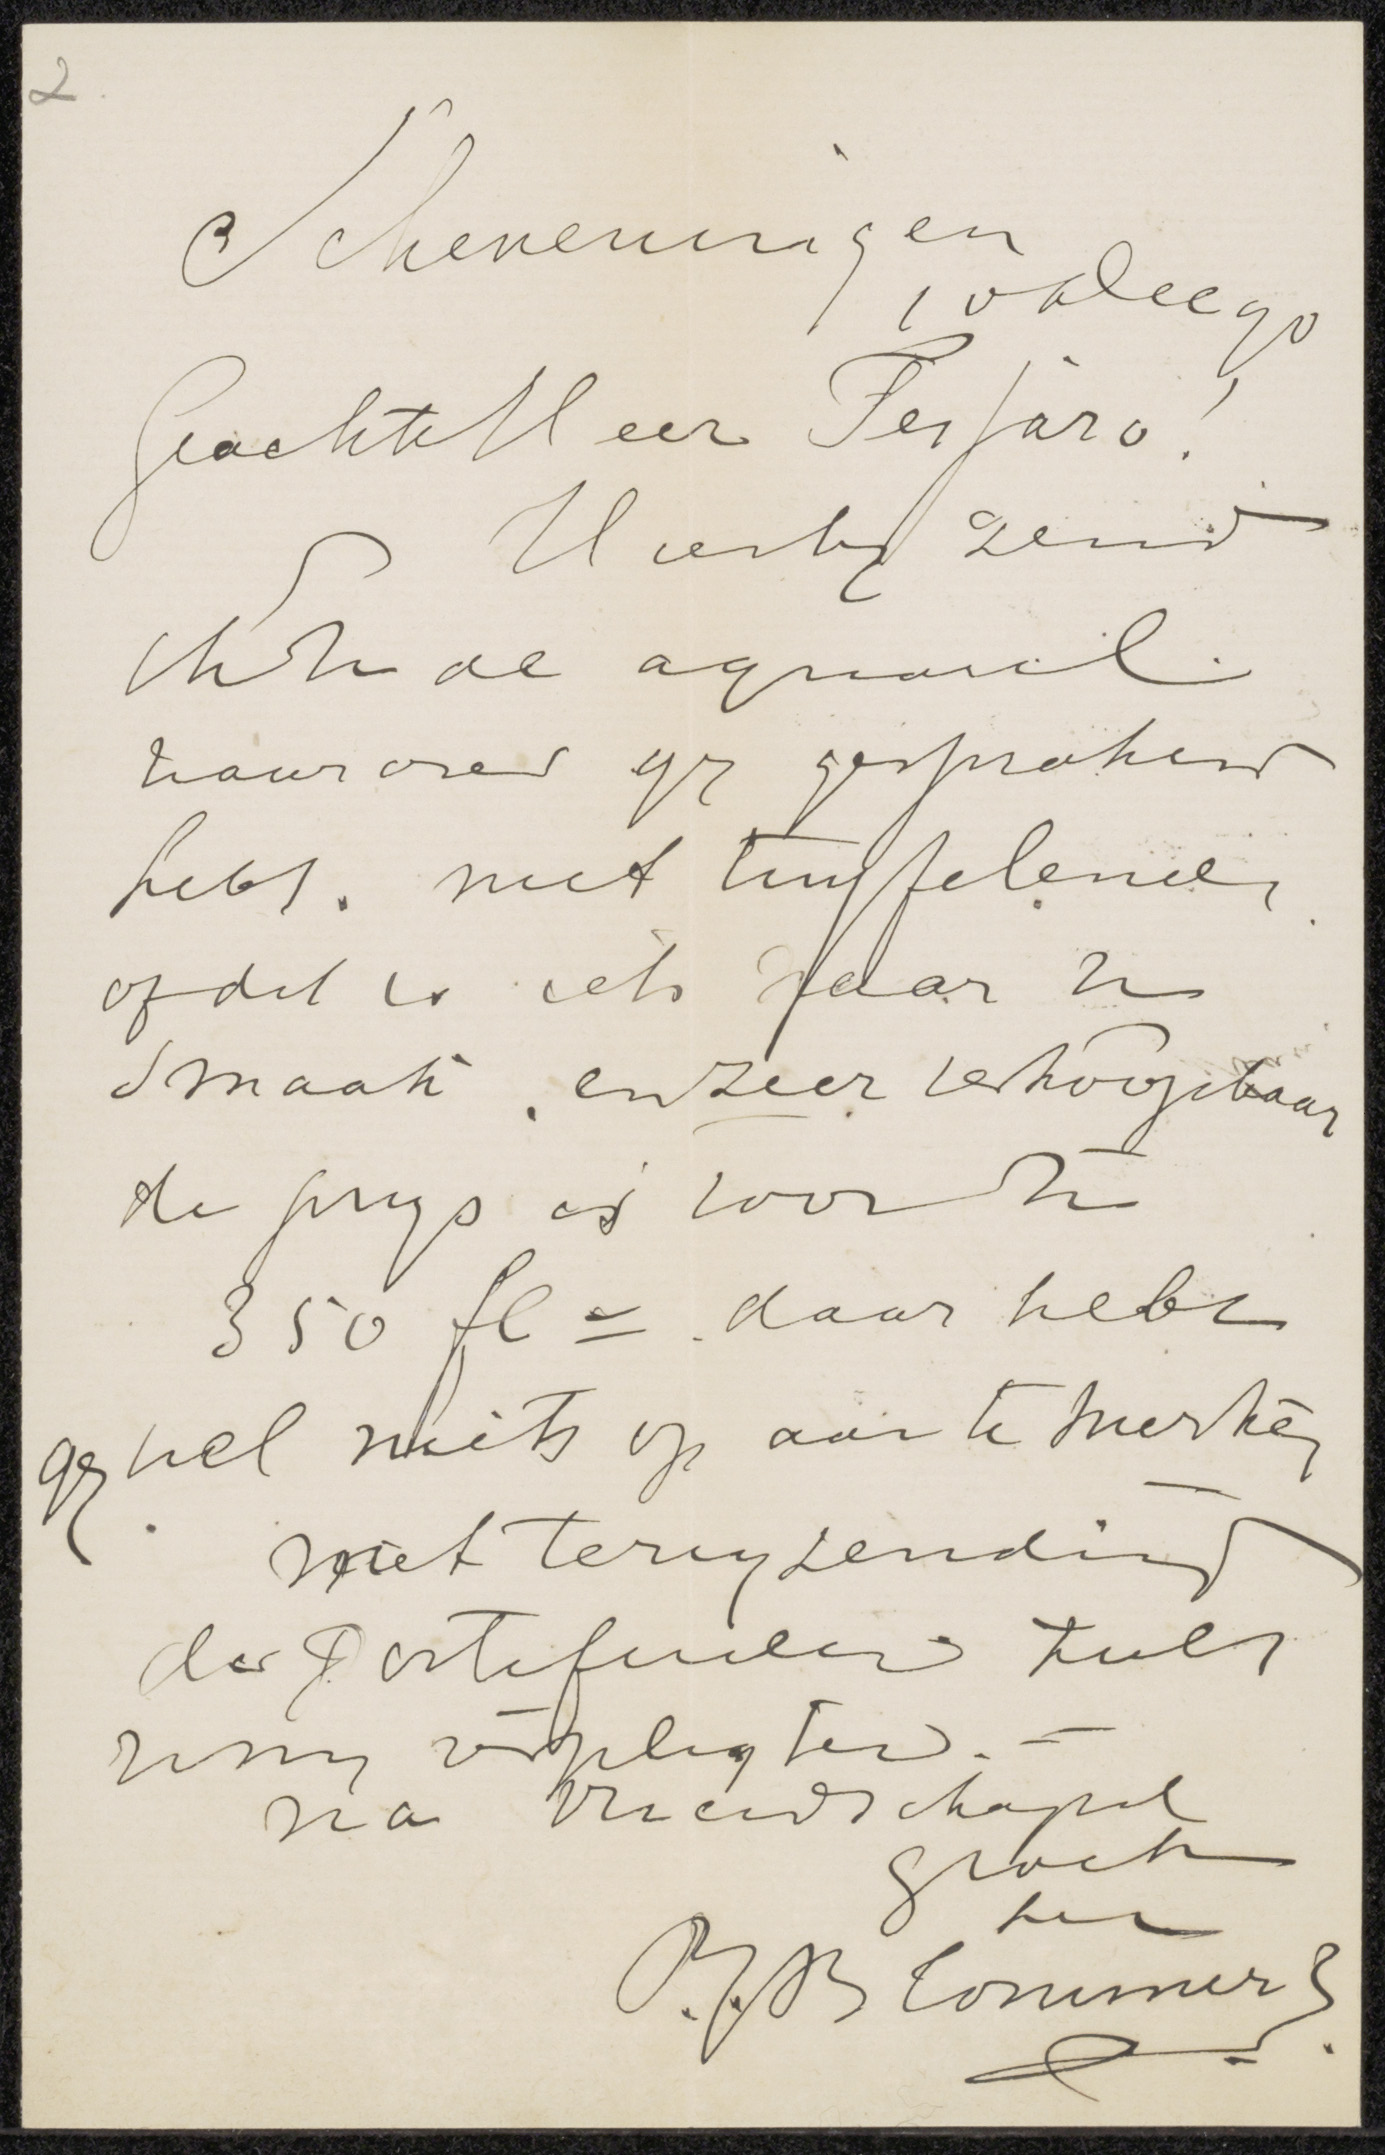 2
Scheveningen
10 Dec 90
Geachte Heer Tersaro!
Hierby zend
ik U de aquarel
waarover gy gesproken
hebt. niet twyfelende,
of dit is iets naar U
smaak, en zeer verkoopbaar
de prys is voor U
350 fl = daar hebt
gy wel niets op aan te merken
met terugzending
der Portefeuille zult
U my verpligten. —
na vriendschapel
groete
her
B.J. Blommers